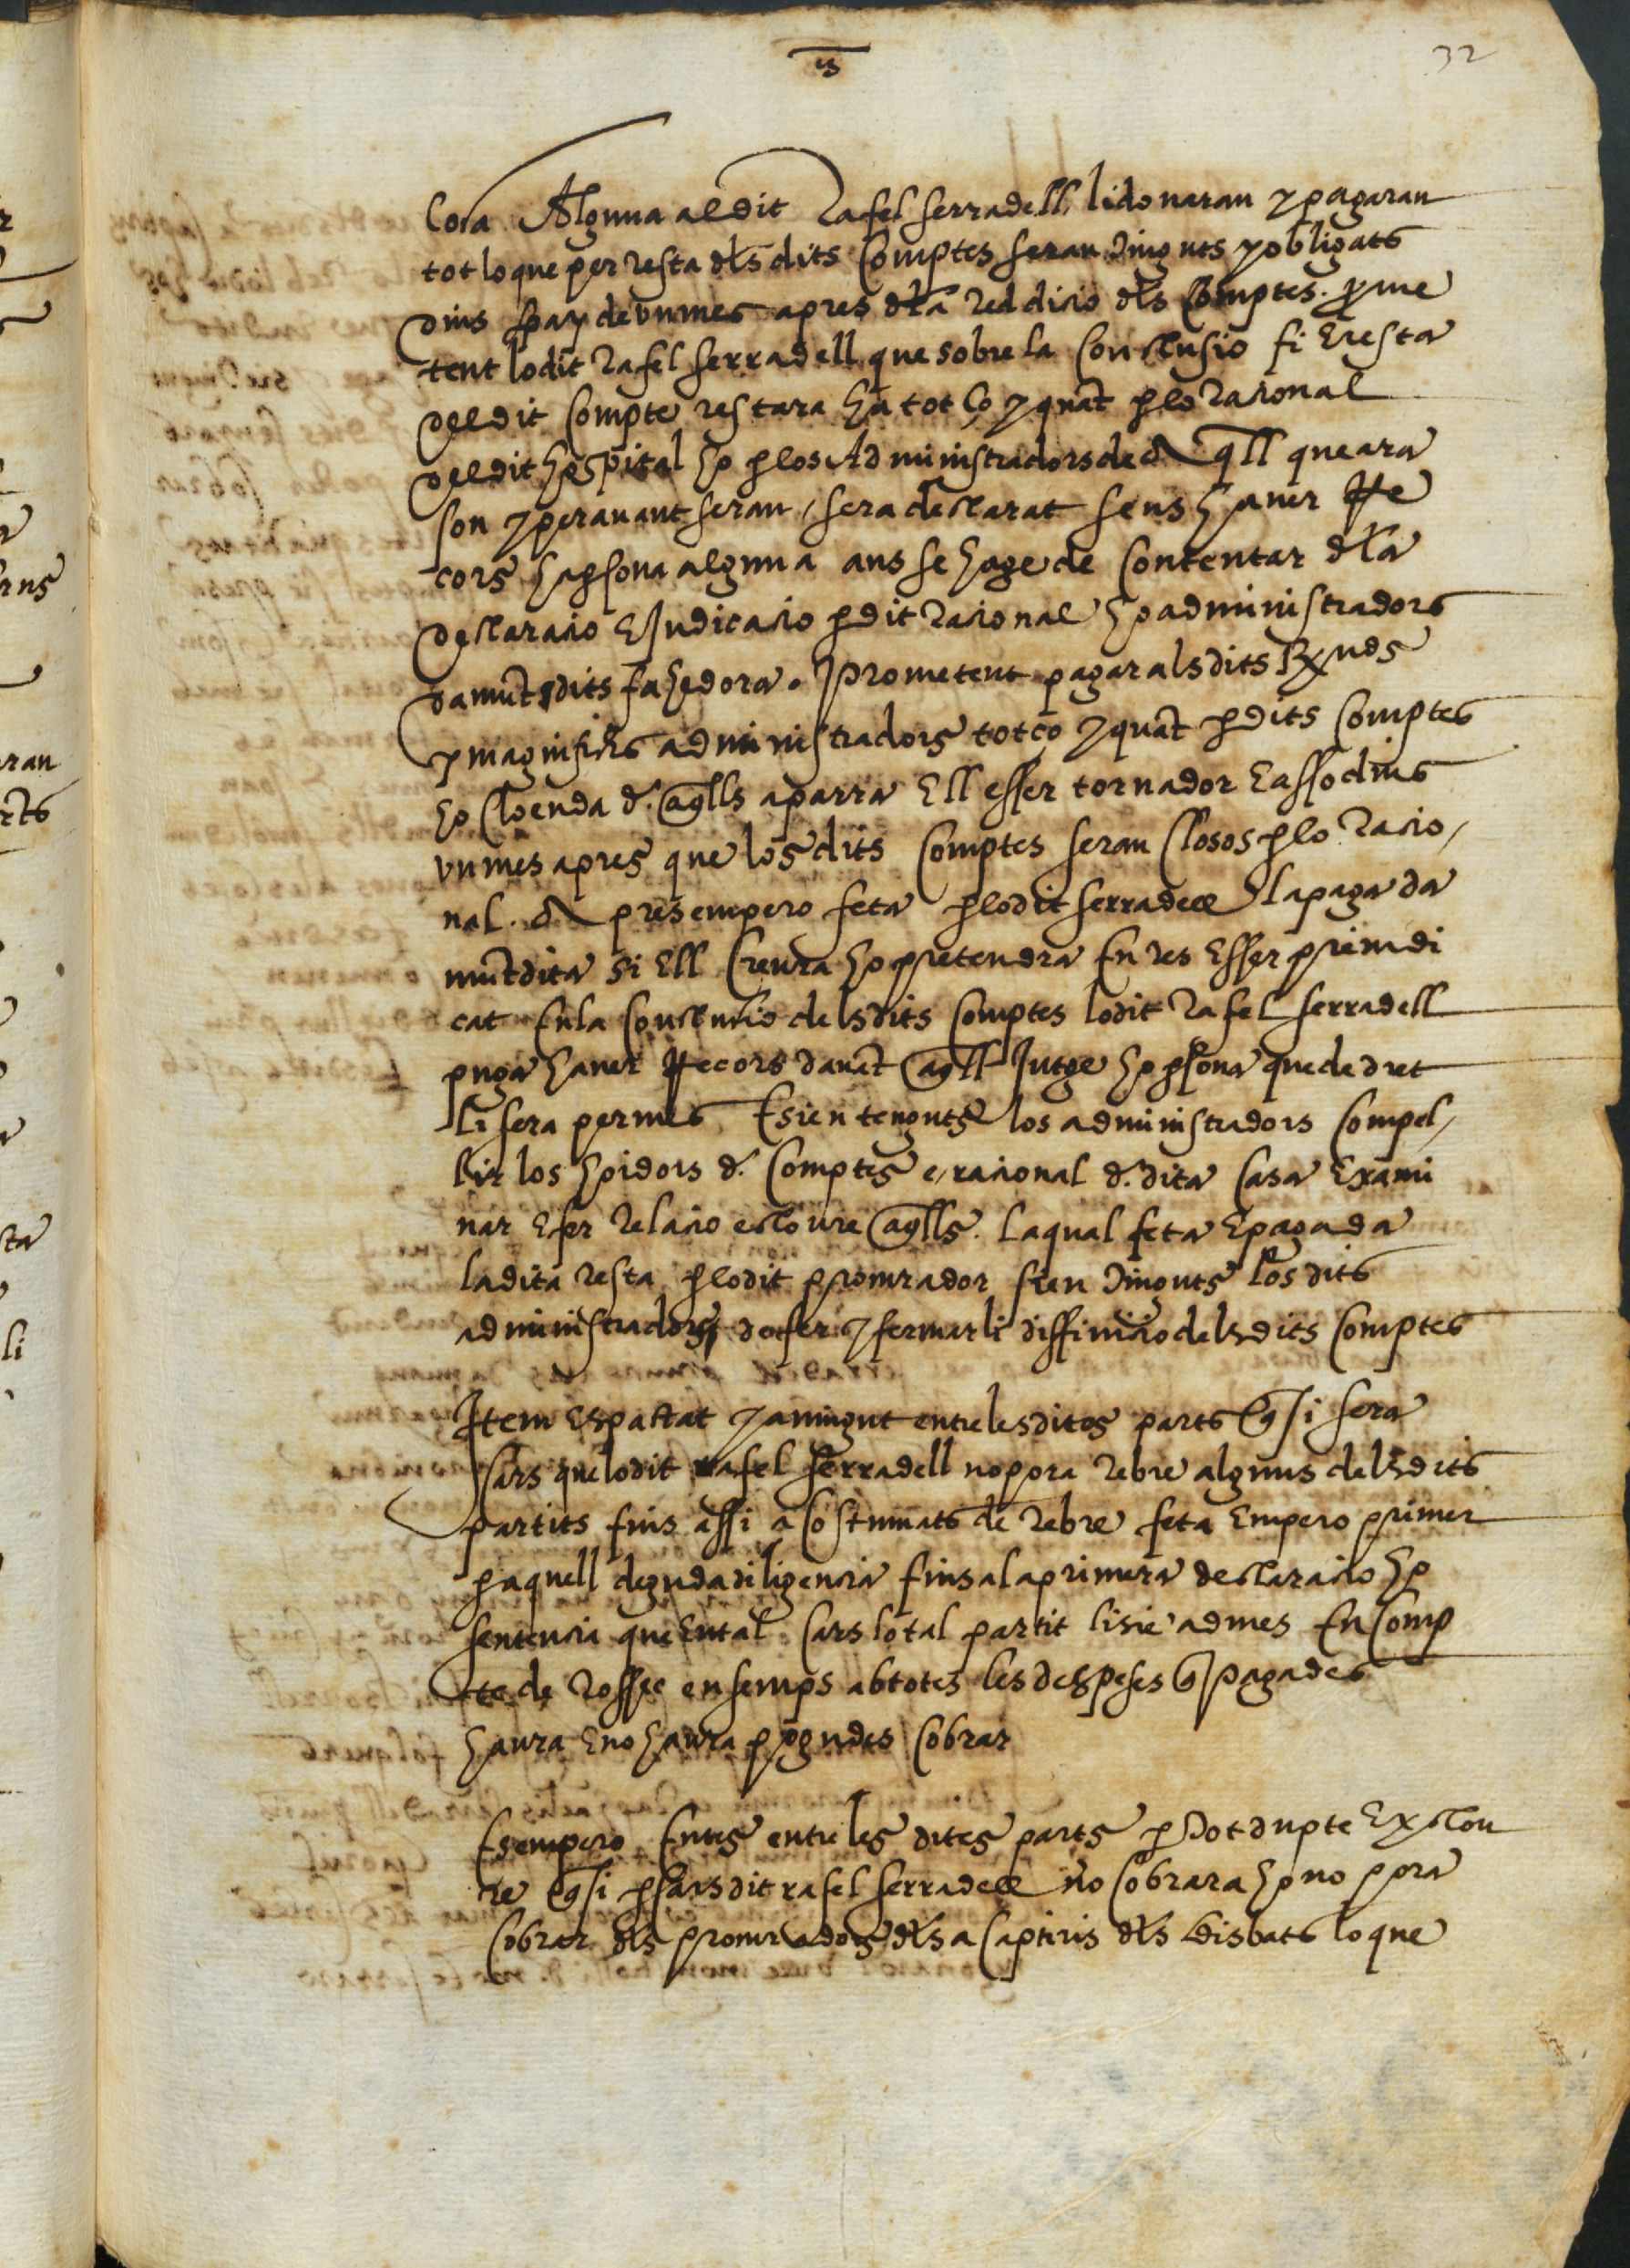 32
Cosa Alguna al dit Rafel serradell li donaran y pagaran
tot lo que per resta dls dits Comptes seran tinguts y obligats
dins spay de un mes apres dla reddicio dls Comptes. prome
tent lo dit Rafel serradell que sobre la Conclusio fi E resta
del dit Compte restara ha tot ço y quat p lo racional
del dit hospital ho p los Administradors de aqll que ara
son y per avant seran, sera declarat sens haver Re
cors ha psona alguna ans se hage de Contentar dla
declaracio E Judicacio p dit racional ho administradors
damunt dits fahedora. Prometent pagar als dits Rnds
y magnifichs administradors tot ço y quat p dits Comptes
ho Cloenda d. aqlls aparra Ell esser tornador E asso dins
un mes apres que los dits Comptes seran Closos p lo racio,
nal. presempero feta p lo dit serradell la paga da
munt dita si Ell Creura ho pretendra En res Esser preiudi
cat En la Conclusio dels dits Comptes lo dit Rafel serradell
puga haver Recors davat aqll Jutge ho psona que de dret
li sera permes E sien tenguts los administradors Compel,
lir los hoidors d. Comptes e, racional d. dita Casa Exami
nar E fer relacio e cloure aqlls. la qual feta E pagada
la dita resta p lo dit procurador sien tinguts los dits
administradors de fer y fermar li diffinicio dels dits Comptes
Item Es pactat y avingut entre les dites parts q si sera
Cars que lo dit rafel serradell no pora rebre alguns dels dits
partits fins assi acostumats de rebre feta Empero primer
p aquell deguda diligencia fins a la primera declaracio ho
sentencia que En tal Cars lo tal partit li sie admes En Comp
te de rossec ensemps ab totes les despeses q pagades
haura E no haura pogudes Cobrar
Es empero Entes entre les dites parts p tot dupte Exclou
re q si p Cars dit rafel serradell no Cobrara ho no pora
Cobrar dls procuradors dls a Captiris dls bisbats lo que